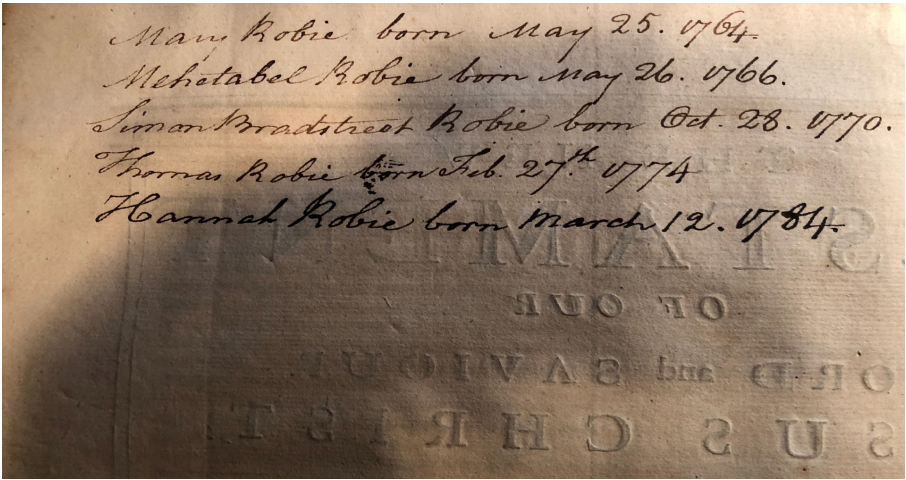 Mary Robie born May 25. 1764.
Mehetabel Robie born May 26. 1766.
Simon Bradstreet Robie born Oct. 28. 1770.
Thomas Robie born Feb. 27th. 1774
Hannah Robie born March 12. 1784.
STAMEN
OF OUR
ORD and SAVIOUR
SUS CHRIST